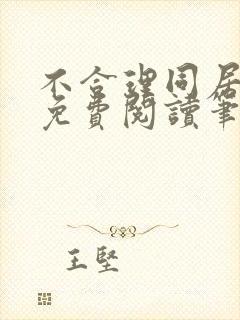 不合理同居
免費閱讀筆
王堅